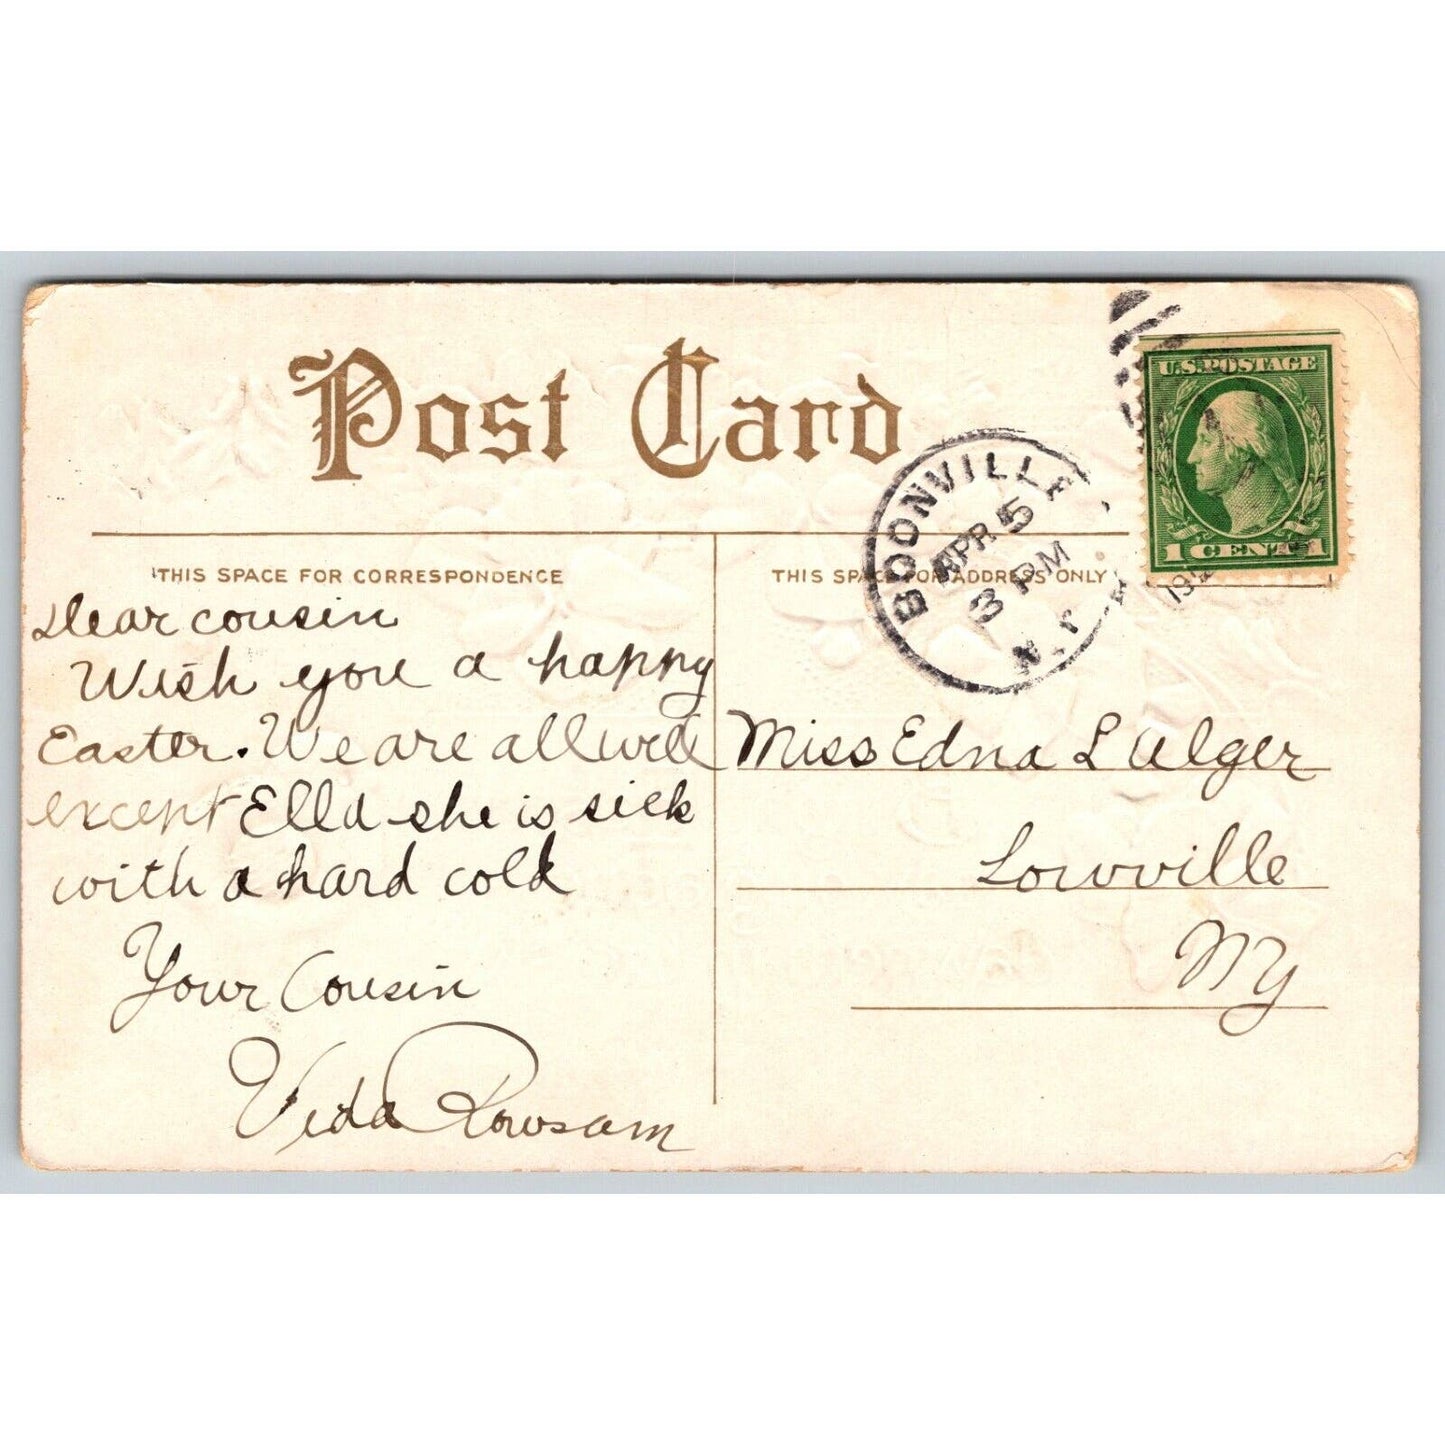 Post Card
THIS SPACE FOR CORRESPONDENCE
Dear cousin
Wish you a happy
Easter. We are all well
except Ella she is sick
with a hard cold
Your Cousin
Vida Rowsam
THIS SPACE FOR ADDRESS ONLY
BOONVILLE
APR 5
3 PM
N.Y.
U.S. POSTAGE
1 CENT 1
Miss Edna L Alger
Lowville
NY